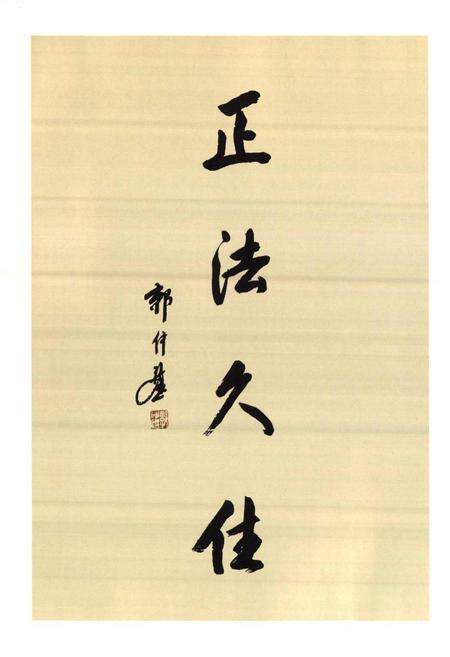 正法久住
郭付基